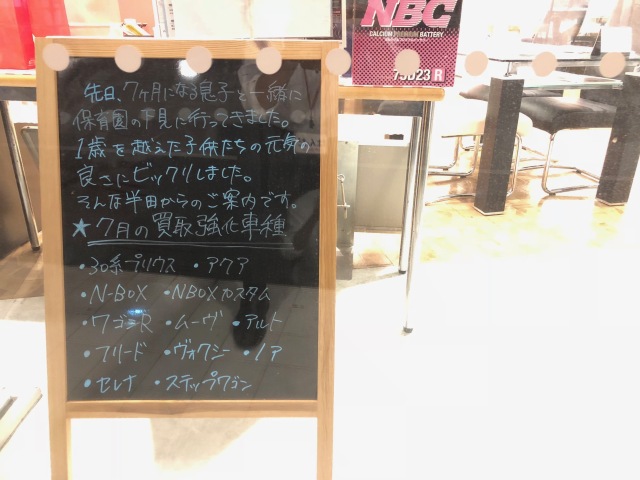 NBC
CALCIUM PREMIUM BATTERY
75D23 R
先日、7ヶ月になる息子と一緒に
保育園の下見に行ってきました。
1歳を越えた子供たちの元気の
良さにビックリしました。
そんな半田からのご案内です。
★7月の買取強化車種
・30系プリウス ・アクア
・N-BOX ・NBOXカスタム
・ワゴンR ・ムーヴ ・アルト
・フリード ・ヴォクシー ・ノア
・セレナ ・ステップワゴン